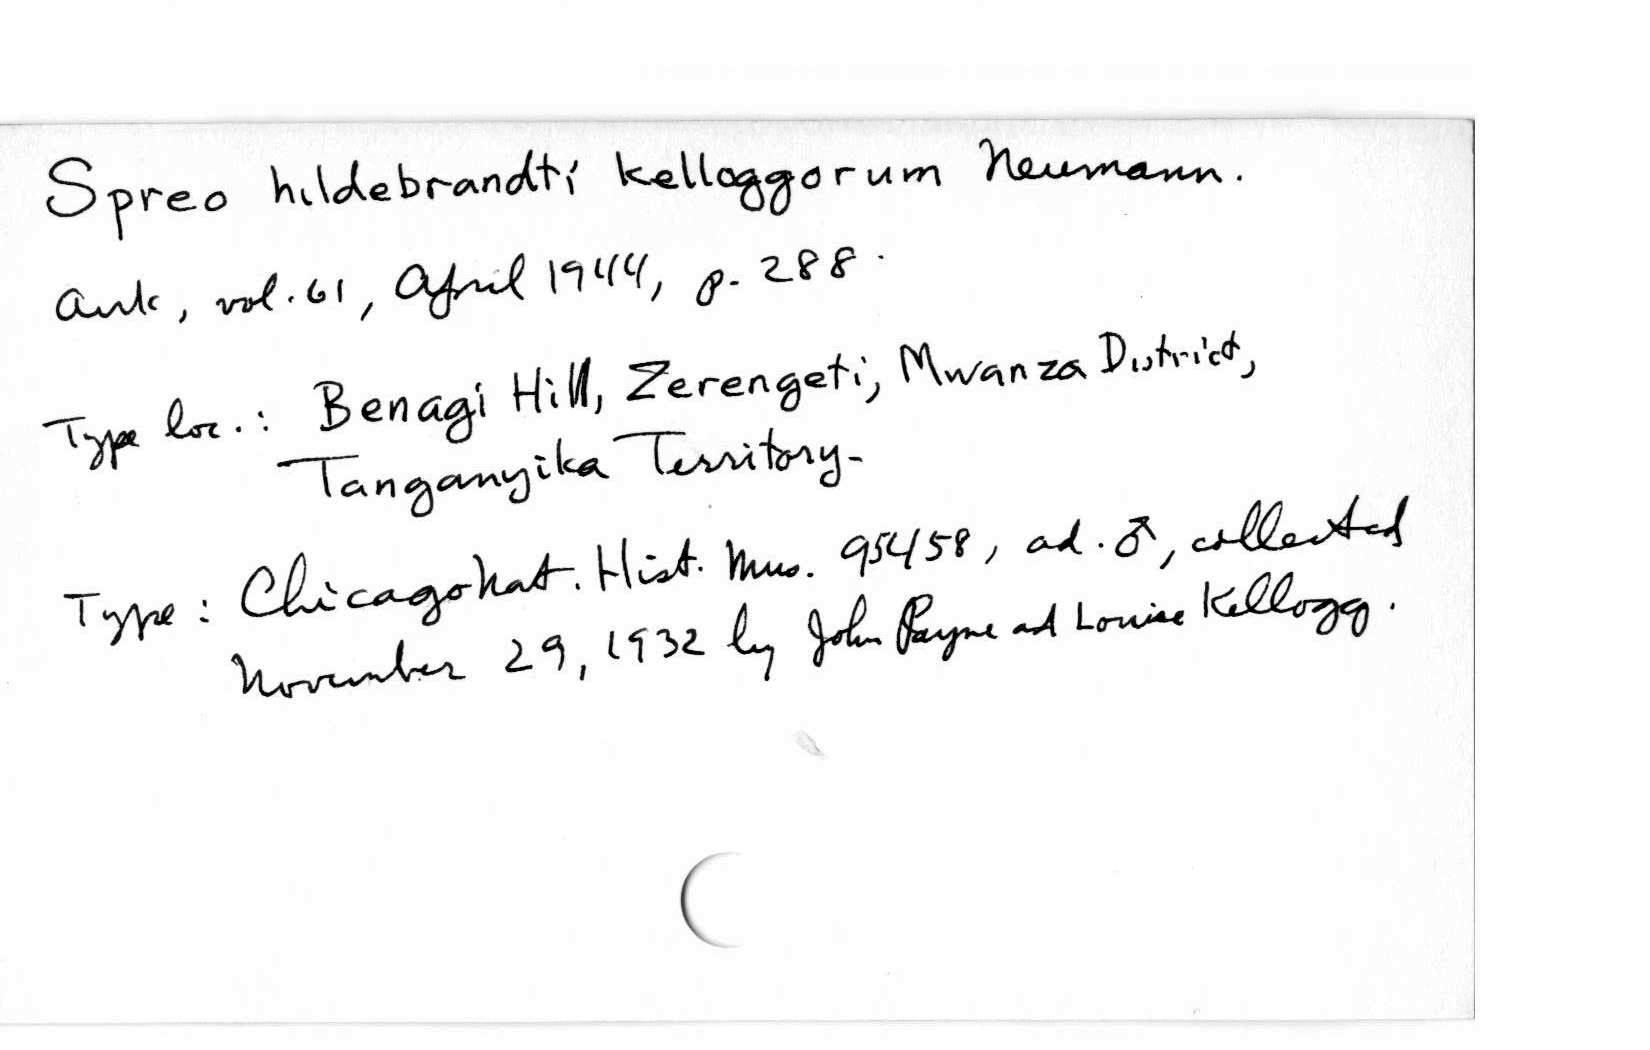 Spreo hildebrandti kelloggorum Neumann.
Auk, vol. 61, April 1944, p. 288.
Type loc.: Benagi Hill, Zerengeti, Mwanza District,
Tanganyika Territory.
Type: Chicago Nat. Hist. Mus. 95458, ad. ♂, collected
November 29, 1932 by John Payne and Louise Kellogg.